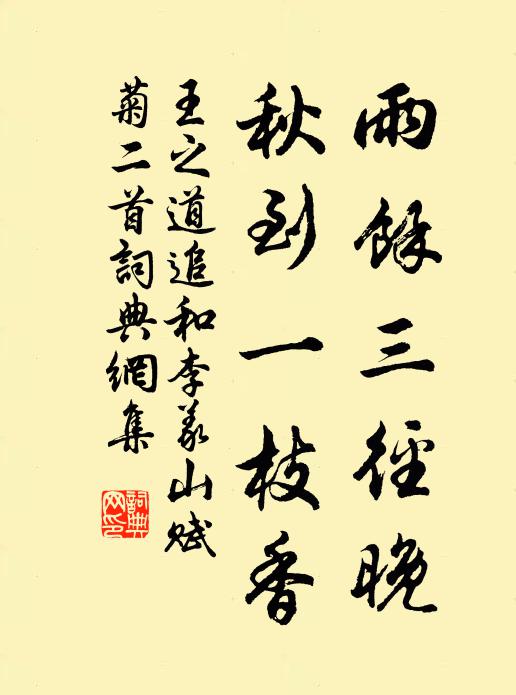 雨餘三徑晚
秋到一枝香
王之道追和李義山賦
菊二首詞典網集
詞典
网印